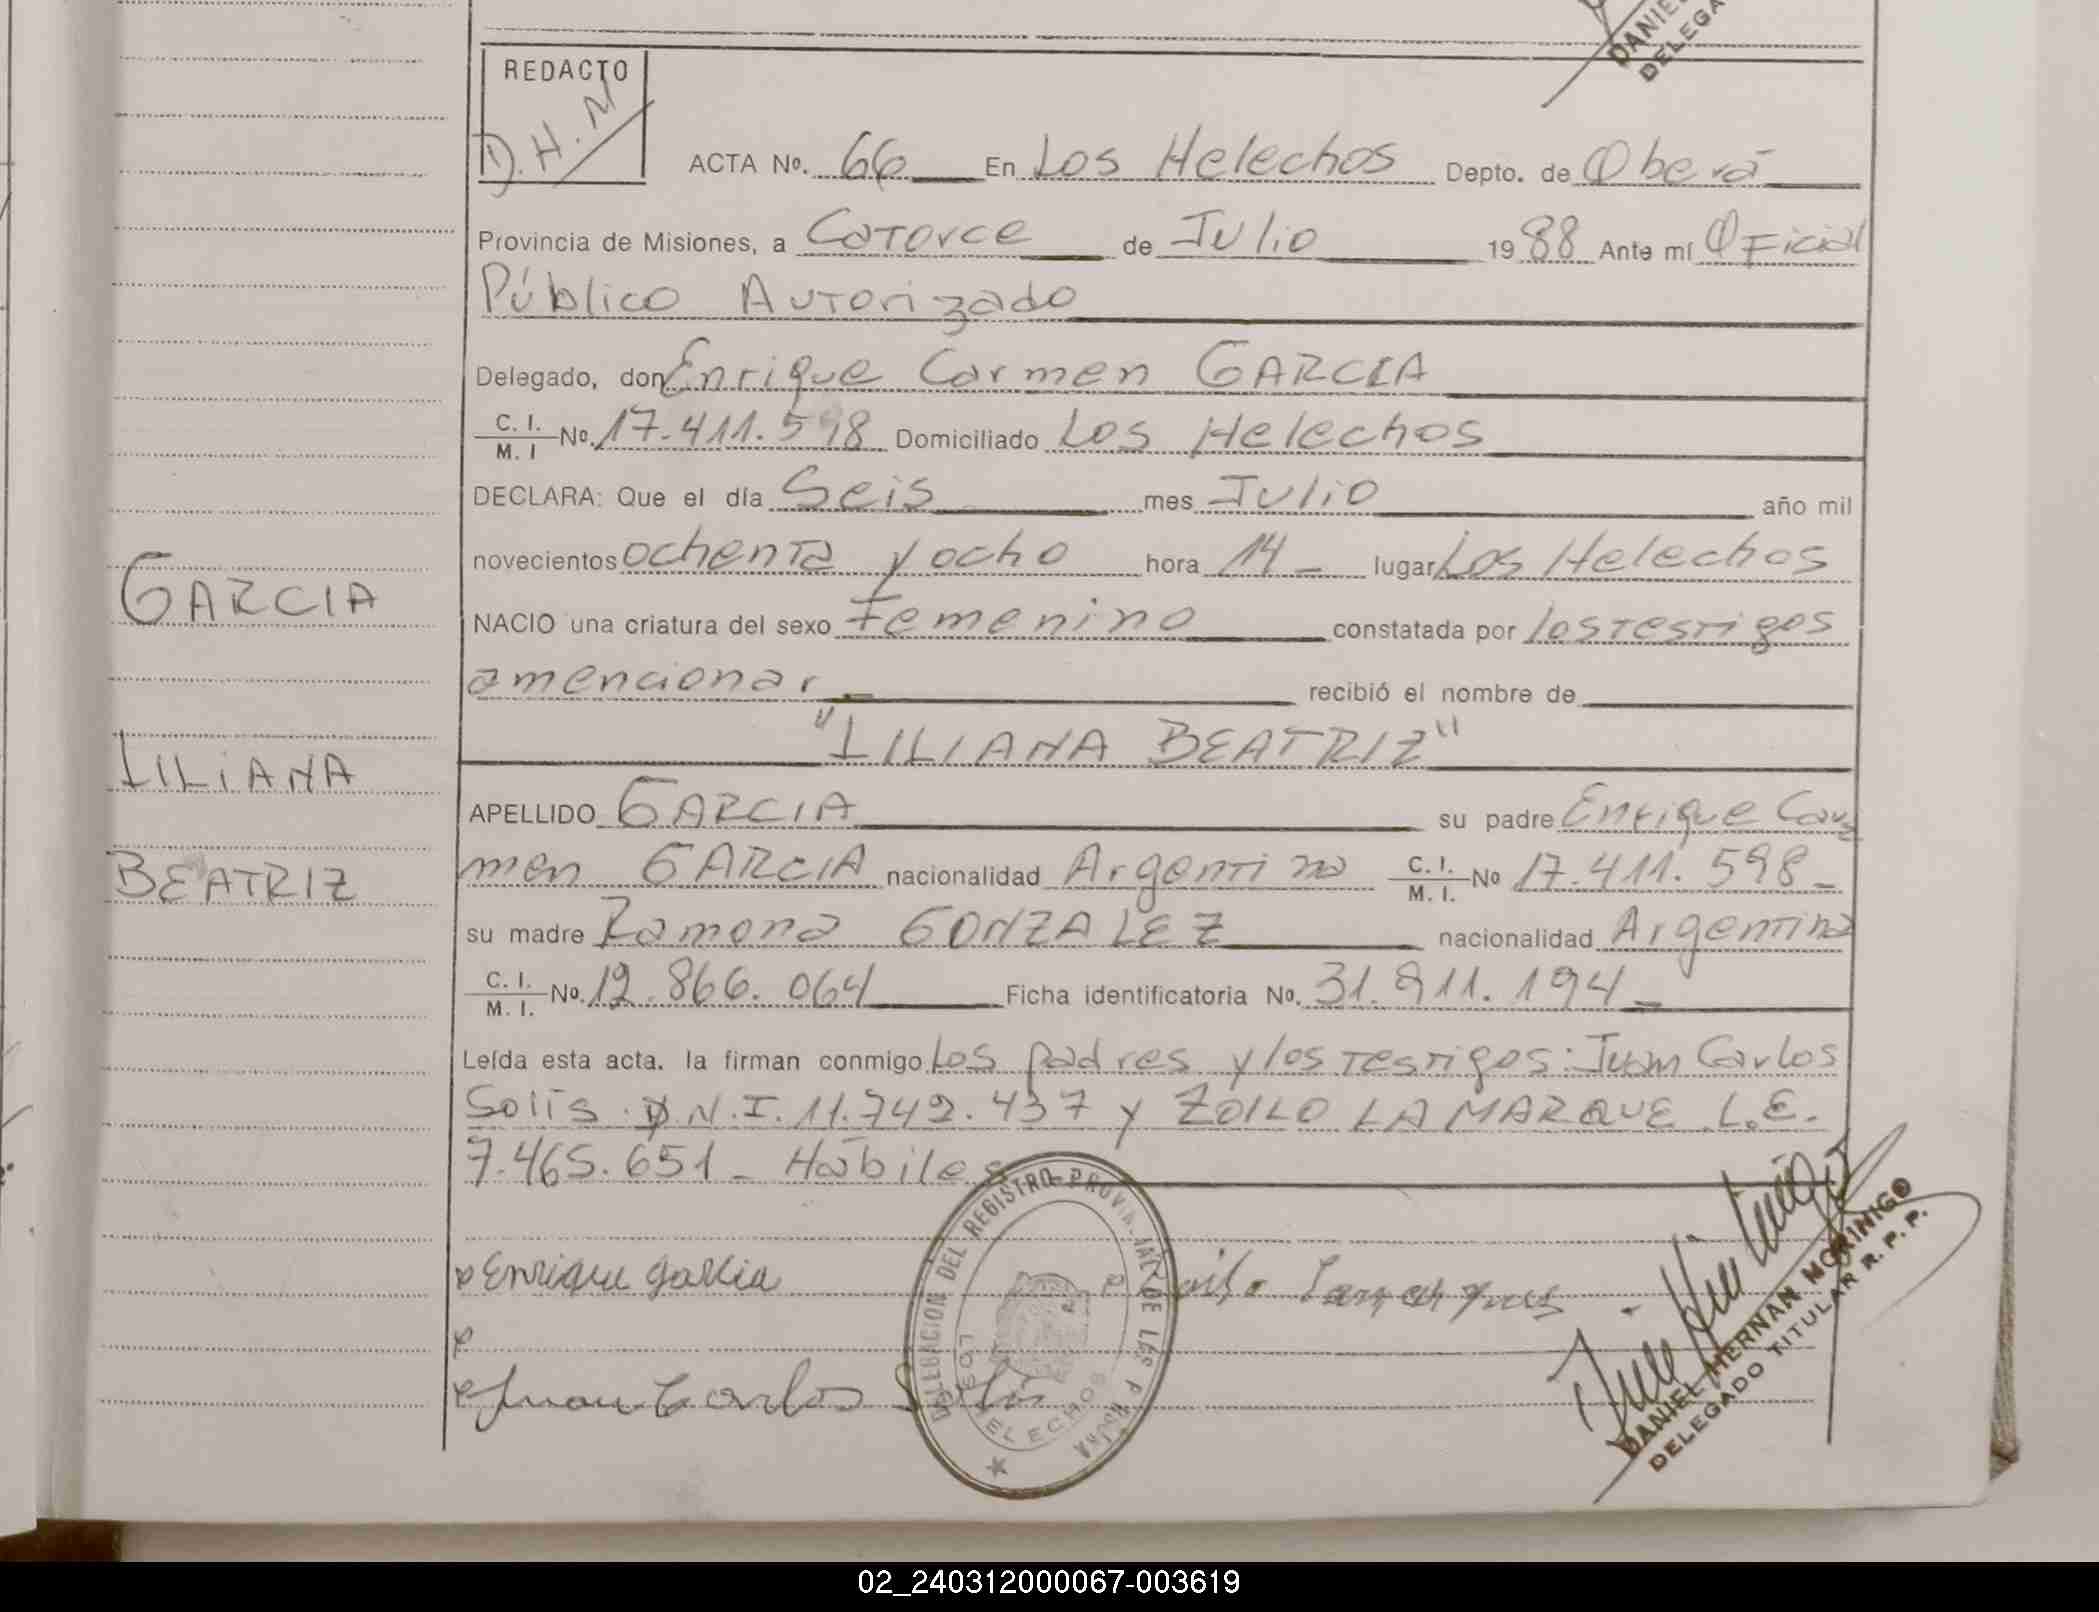 DANIEL
DELEGA
REDACTO
D.H.M
ACTA Nº. 66 En Los Helechos Depto. de Oberá
Provincia de Misiones, a Catorce de Julio 1988 Ante mí Oficial
Público Autorizado
Delegado, don Enrique Carmen GARCIA
C. I. / M. I Nº. 17.411.598 Domiciliado Los Helechos
DECLARA: Que el día Seis mes Julio año mil
novecientos ochenta y ocho hora 14 _ lugar Los Helechos
GARCIA
NACIO una criatura del sexo Femenino constatada por los testigos
amencionar recibió el nombre de
LILIANA
"LILIANA BEATRIZ"
APELLIDO GARCIA su padre Enrique Car
BEATRIZ
men GARCIA nacionalidad Argentino C. I. / M. I. Nº 17.411.598_
su madre Ramona GONZALEZ nacionalidad Argentina
C. I. / M. I. Nº. 12.866.064 Ficha identificatoria Nº. 31.911.194_
Leída esta acta. la firman conmigo Los padres y los testigos: Juan Carlos
Solís D.N.I. 11.742.437 y ZOILO LAMARQUE L.E.
7.465.651_ Hábiles
Enrique Garcia
Zoilo Lamarque
Juan Carlos Solis
DELEGACION DEL REGISTRO PROVINCIAL DE LAS PERSONAS
LOS HELECHOS
DANIEL HERNAN MORINIGO
DELEGADO TITULAR R. P. P.
02_240312000067-003619